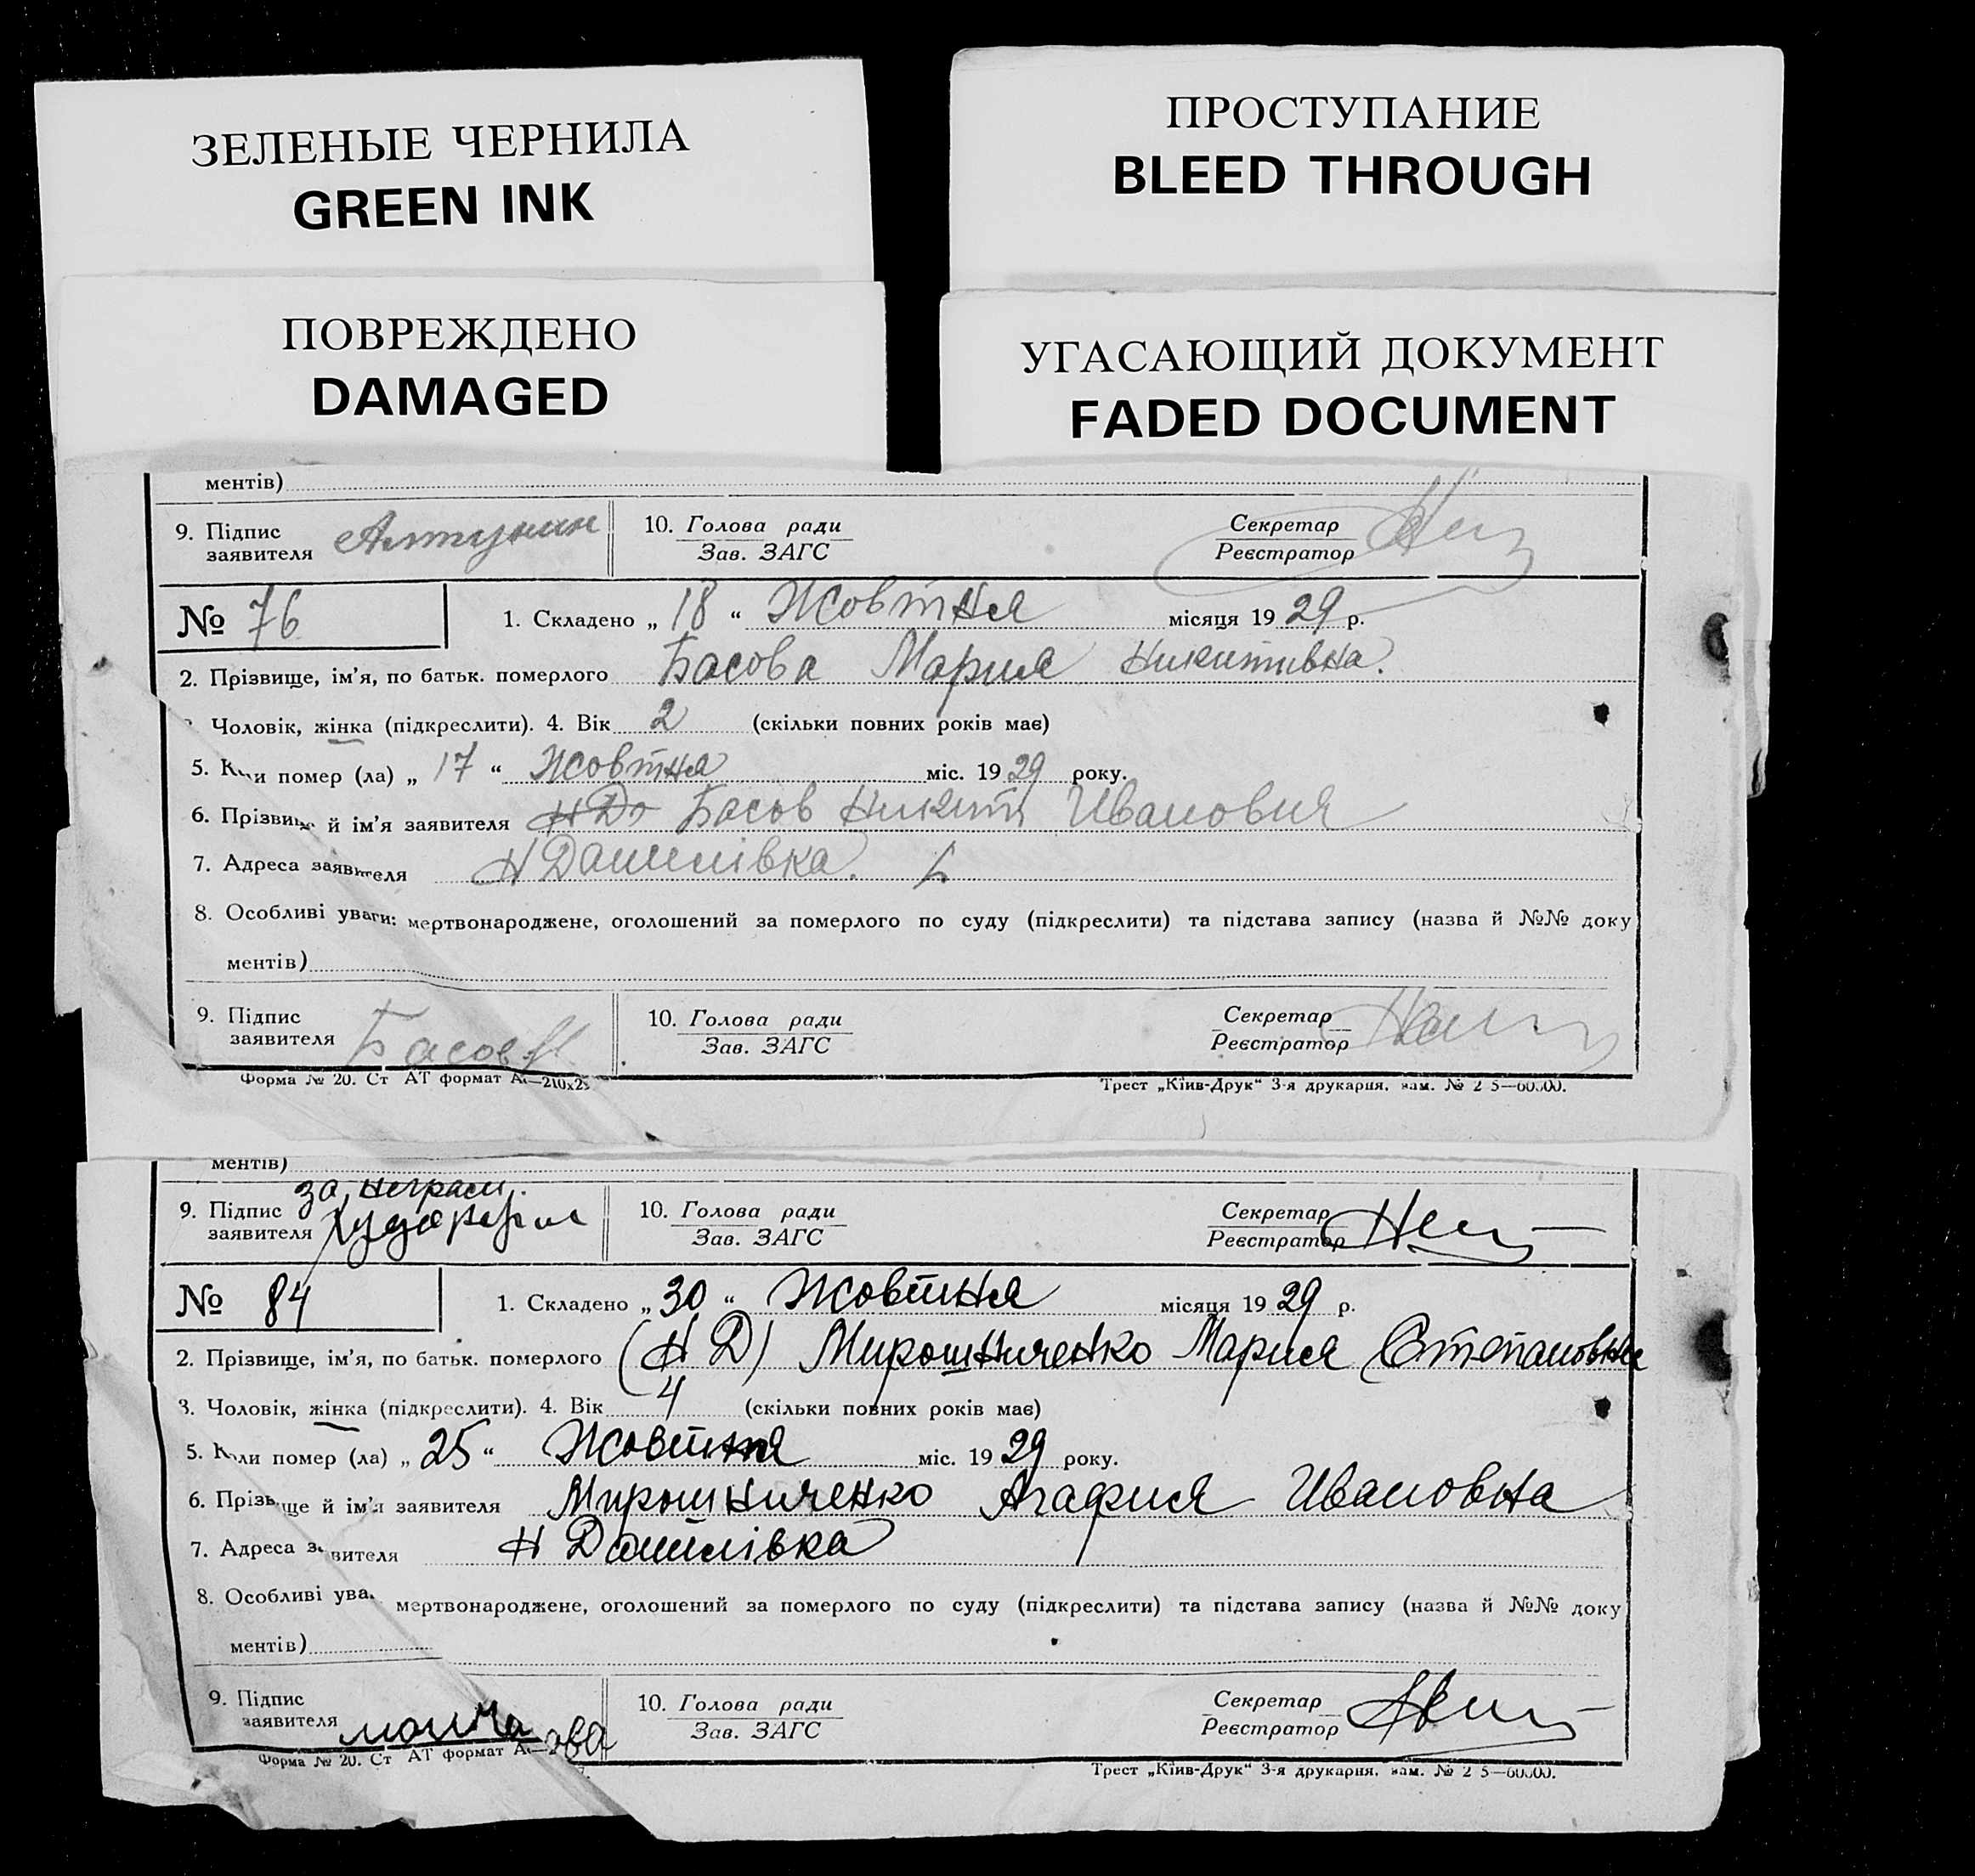 ЗЕЛЕНЫЕ ЧЕРНИЛА
GREEN INK
ПРОСТУПАНИЕ
BLEED THROUGH
ПОВРЕЖДЕНО
DAMAGED
УГАСАЮЩИЙ ДОКУМЕНТ
FADED DOCUMENT
ментів)
9. Підпис заявителя 10. Голова ради Секретар
Зав. ЗАГС Реєстратор
№ 76 1. Складено „ 18 “ Жовтня місяця 19 29 р.
2. Прізвище, ім'я, по батьк. померлого Басова Мария Никитивна.
Чоловік, жінка (підкреслити). 4. Вік 2 (скільки повних років має)
5. Коли помер (ла) „ 17 “ Жовтня міс. 19 29 року.
6. Прізвище й ім'я заявителя Басов Никит Иванович
7. Адреса заявителя Н Данилівка.
8. Особливі уваги: мертвонароджене, оголошений за померлого по суду (підкреслити) та підстава запису (назва й №№ доку
ментів)
9. Підпис заявителя Басов Н 10. Голова ради Секретар
Зав. ЗАГС Реєстратор
Форма № 20. Ст АТ формат Трест „Київ-Друк“ 3-я друкарня, зам. №
ментів)
9. Підпис заявителя за неграм. 10. Голова ради Секретар
Зав. ЗАГС Реєстратор
№ 84 1. Складено „ 30 “ Жовтня місяця 19 29 р.
2. Прізвище, ім'я, по батьк. померлого (Н Д) Мирошниченко Мария Степановна
3. Чоловік, жінка (підкреслити). 4. Вік 4 (скільки повних років має)
5. Коли помер (ла) „ 25 “ Жовтня міс. 19 29 року.
6. Прізвище й ім'я заявителя Мирошниченко Агафия Ивановна
7. Адреса заявителя Н Данилівка
8. Особливі уваги мертвонароджене, оголошений за померлого по суду (підкреслити) та підстава запису (назва й №№ доку
ментів)
9. Підпис заявителя 10. Голова ради Секретар
Зав. ЗАГС Реєстратор
Форма № 20. Ст АТ формат Трест „Київ-Друк“ 3-я друкарня, зам. №